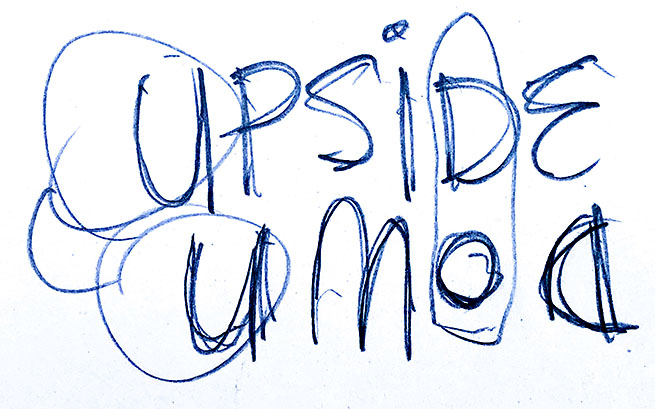 UPSiDE
umod